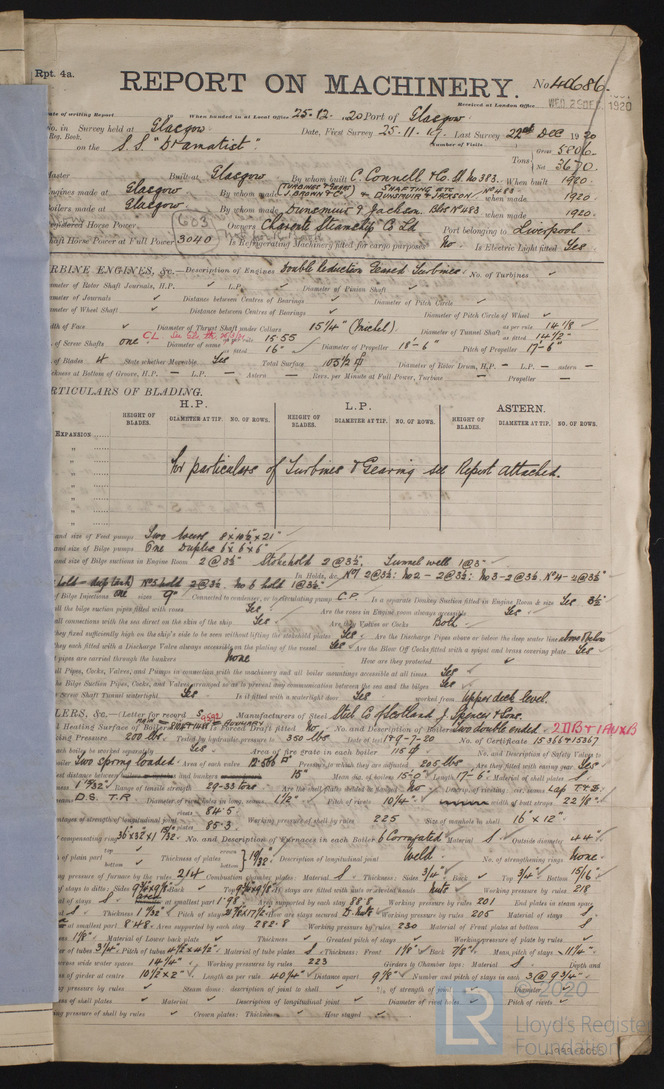 Rpt. 4a.
REPORT ON MACHINERY.
No 40686.
Received at London Office WED. 29 DEC. 1920
Date of writing Report When handed in at Local Office 25.12.1920 Port of Glasgow
No. in Survey held at Glasgow Date, First Survey 25-11-19 Last Survey 22nd Dec 1920
Reg. Book. Number of Visits
on the S.S. "Dramatist". Tons Gross 5806
Net 3670
Master Built at Glasgow By whom built C. Connell & Co. Ld No 383. When built 1920.
Engines made at Glasgow By whom made (Turbines & Gears) J. Brown & Co. & Shafting etc Dunsmuir & Jackson No 483 when made 1920
Boilers made at Glasgow By whom made Dunsmuir & Jackson Blrs No 483 when made 1920.
Registered Horse Power 603 Owners Charente Steamship Co Ld Port belonging to Liverpool
Shaft Horse Power at Full Power 3040 Is Refrigerating Machinery fitted for cargo purposes No Is Electric Light fitted Yes
TURBINE ENGINES, &c.—Description of Engines Double Reduction Geared Turbines No. of Turbines
Diameter of Rotor Shaft Journals, H.P. L.P. Diameter of Pinion Shaft
Diameter of Journals Distance between Centres of Bearings Diameter of Pitch Circle
Diameter of Wheel Shaft Distance between Centres of Bearings Diameter of Pitch Circle of Wheel
Width of Face Diameter of Thrust Shaft under Collars 15 1/4" (Michel) Diameter of Tunnel Shaft as per rule 14 1/8 as fitted 14 1/2"
No. of Screw Shafts one CL Diameter of same as per rule 15.55 as fitted 16" Diameter of Propeller 18'-6" Pitch of Propeller 17'-6"
No. of Blades 4 State whether Moveable Yes Total Surface Diameter of Rotor Drum, H.P. — L.P. — Astern —
Thickness at Bottom of Groove, H.P. — L.P. — Astern — Revs. per Minute at Full Power, Turbine Propeller —
PARTICULARS OF BLADING.
H.P. L.P. ASTERN.
HEIGHT OF BLADES. DIAMETER AT TIP. NO. OF ROWS. HEIGHT OF BLADES. DIAMETER AT TIP. NO. OF ROWS. HEIGHT OF BLADES. DIAMETER AT TIP. NO. OF ROWS.
EXPANSION
For particulars of Turbines & Gearing see Report attached.
and size of Feed pumps Two Weirs 8" x 10 1/2" x 21"
and size of Bilge pumps One Duplex 6" x 6" x 6"
and size of Bilge suctions in Engine Room 2 @ 3 1/2" Stokehold 2 @ 3 1/2". Tunnel well 1 @ 3"
In Holds, &c. No 1 2@3 1/2; No 2 - 2@3 1/2; No 3 - 2@3 1/2. No 4 - 2@3 1/2"
hold - deep tank) No 5 hold 2@3 1/2. No 6 hold 1@3 1/2"
of Bilge Injections one sizes 9" Connected to condenser, or to circulating pump C.P. Is a separate Donkey Suction fitted in Engine Room & size Yes 3 1/2
all the bilge suction pipes fitted with roses Yes Are the roses in Engine room always accessible Yes
all connections with the sea direct on the skin of the ship Yes Are they Valves or Cocks Both
they fixed sufficiently high on the ship's side to be seen without lifting the stokehold plates Yes Are the Discharge Pipes above or below the deep water line above & below
they each fitted with a Discharge Valve always accessible on the plating of the vessel Yes Are the Blow Off Cocks fitted with a spigot and brass covering plate Yes
pipes are carried through the bunkers None How are they protected
all Pipes, Cocks, Valves, and Pumps in connection with the machinery and all boiler mountings accessible at all times Yes
the Bilge Suction Pipes, Cocks, and Valves arranged so as to prevent any communication between the sea and the bilges Yes
Screw Shaft Tunnel watertight Yes Is it fitted with a watertight door Yes worked from Upper deck level.
BOILERS, &c.—(Letter for record S) Manufacturers of Steel Steel Co of Scotland J. Spencer & Sons.
Heating Surface of Boilers Is Forced Draft fitted No. No. and Description of Boilers Two double ended 2 DB & 1 AUXB
Working Pressure 200 lbs. Tested by hydraulic pressure to 350 lbs Date of test 9-7-20 No. of Certificate 15366 & 15367
each boiler be worked separately Yes Area of fire grate in each boiler 115 No. and Description of Safety Valves to
boiler Two spring loaded Area of each valve Pressure to which they are adjusted 205 lbs Are they fitted with easing gear Yes
distance between and bunkers 15" Mean dia. of boilers 15'-0" Length 17'-6" Material of shell plates S.
1 15/32" Range of tensile strength 29-33 tons Are the shell plates welded or flanged No Descrip. of riveting: cir. seams Lap T & D.
D.S. T.R. Diameter of rivet holes in long. seams 1 1/2" Pitch of rivets 10 1/4" width of butt straps 22 1/8"
percentages of strength of longitudinal joint 84.5 85.3 Working pressure of shell by rules 225 Size of manhole in shell 16" x 12"
compensating ring No. and Description of Furnaces in each Boiler 6 Corrugated Material S Outside diameter 44"
of plain part Thickness of plates 19/32" Description of longitudinal joint Weld No. of strengthening rings None
Working pressure of furnace by the rules 214 Combustion chamber plates: Material S Thickness: Sides 3/4" Back Top 3/4" Bottom 15/16"
of stays to ditto: Sides Back Top If stays are fitted with nuts or riveted heads Nuts Working pressure by rules 218
of stays S at smallest part 1.98 Area supported by each stay 88.8 Working pressure by rules 201 End plates in steam space
S Thickness 1 7/32" Pitch of stays How are stays secured D. nuts Working pressure by rules 205 Material of stays S
at smallest part 8.48 Area supported by each stay 282.8 Working pressure by rules 230 Material of Front plates at bottom S
1 1/8" Material of Lower back plate Thickness Greatest pitch of stays Working pressure of plate by rules
of tubes 3 1/4" Pitch of tubes 4 1/2 x 4 1/2" Material of tube plates S Thickness: Front 1 1/8" Back 7/8" Mean pitch of stays 11 1/4"
across wide water spaces 14 1/4" Working pressures by rules 223 Girders to Chamber tops: Material S Depth and
of girder at centre 10 1/2 x 2" Length as per rule 40 1/4" Distance apart 9 7/8" Number and pitch of stays in each 3 @ 9 3/4"
pressure by rules Steam dome: description of joint to shell % of strength of joint Diameter
of shell plates Material Description of longitudinal joint Diameter of rivet holes Pitch of rivets
pressure of shell by rules Crown plates: Thickness How stayed
© 2020
LR Lloyd's Register
Foundation